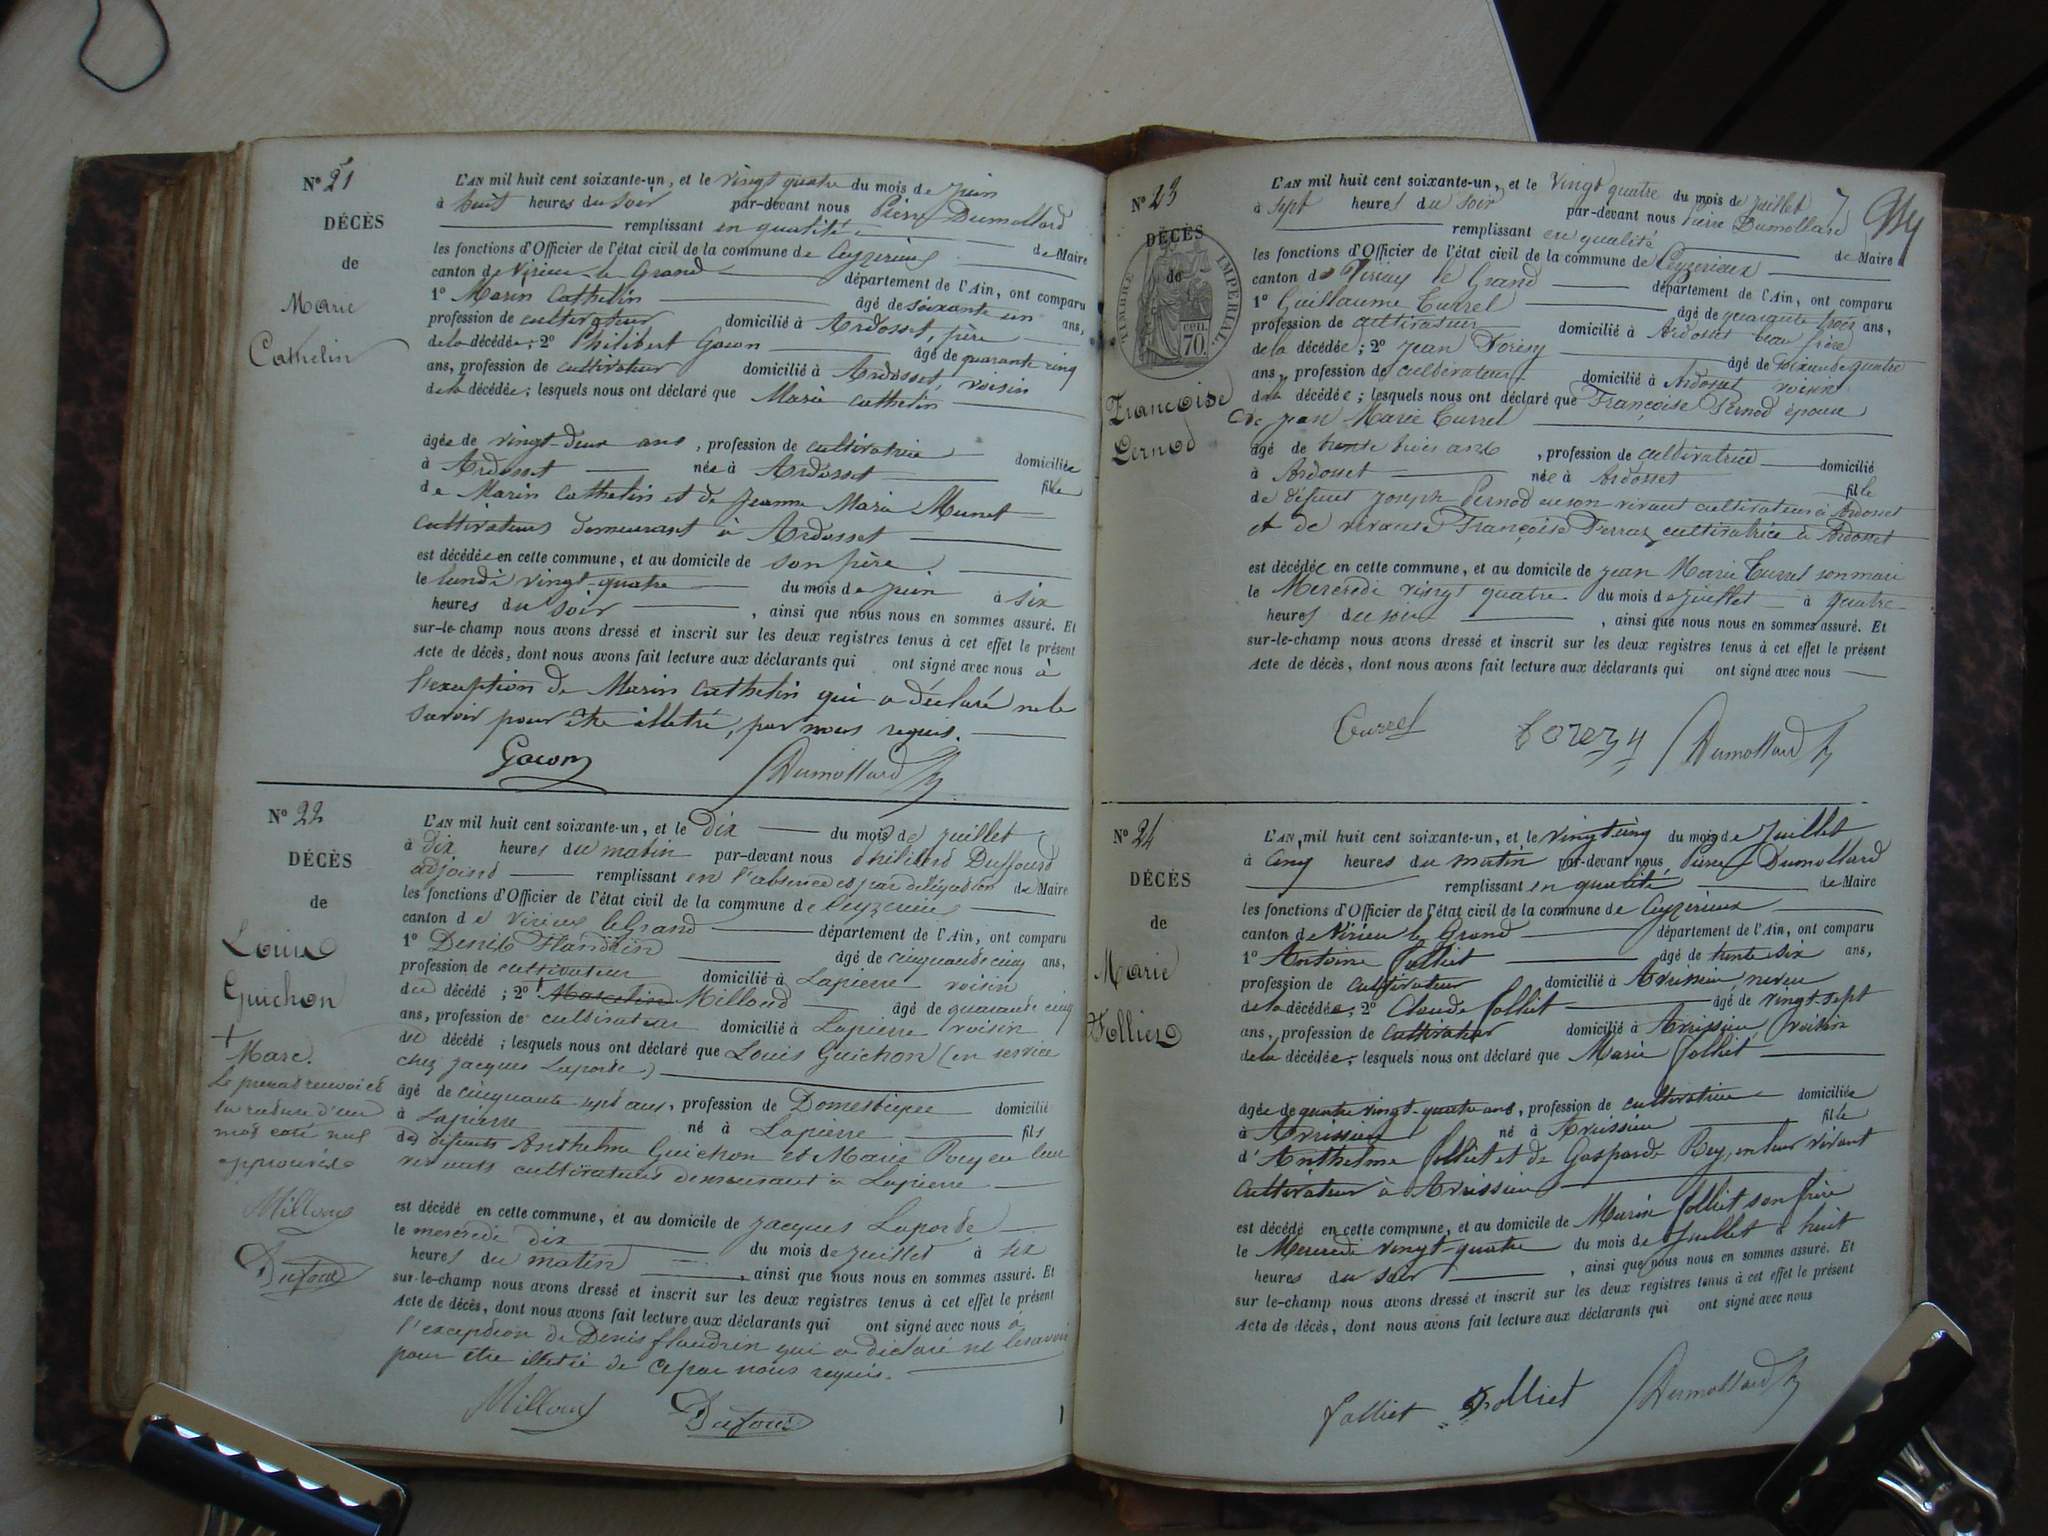 N° 21
DÉCÈS
de
Marie
Cathelin
L'AN mil huit cent soixante-un, et le vingt quatre du mois de juin
à huit heures du soir par-devant nous Pierre Dumollard
remplissant en qualité de Maire
les fonctions d'Officier de l'état civil de la commune de Ceyzerieu
canton de Virieu-le Grand département de l'Ain, ont comparu
1° Marin Cathelin âgé de soixante un ans,
profession de cultivateur domicilié à Ardosset, père
de la décédée; 2° Philibert Gacon âgé de quarante cinq
ans, profession de cultivateur domicilié à Ardosset, voisin
de la décédée; lesquels nous ont déclaré que Marie Cathelin
âgée de vingt-deux ans, profession de cultivatrice domiciliée
à Ardosset née à Ardosset fille
de Marin Cathelin et de Jeanne Marie Munet
cultivateurs demeurant à Ardosset
est décédée en cette commune, et au domicile de son père
le lundi vingt-quatre du mois de juin à six
heures du soir, ainsi que nous nous en sommes assuré. Et
sur-le-champ nous avons dressé et inscrit sur les deux registres tenus à cet effet le présent
Acte de décès, dont nous avons fait lecture aux déclarants qui ont signé avec nous à
l'exception de Marin Cathelin qui a déclaré ne le
savoir pour être illetré, par nous requis.
Gacon Dumollard
N° 22
DÉCÈS
de
Louis
Guichon
+
Marc.
Le présent renvoi et
la rature d'un
mot coté nul
approuvés
Milloud
Dufour
L'AN mil huit cent soixante-un, et le dix du mois de juillet
à dix heures du matin par-devant nous Philibert Duffourd
adjoint remplissant en l'absence et par délégation de Maire
les fonctions d'Officier de l'état civil de la commune de Ceyzerieu
canton de Virieu le Grand département de l'Ain, ont comparu
1° Denis Flandrin âgé de cinquante cinq ans,
profession de cultivateur domicilié à Lapierre voisin
du décédé; 2° + Marcelin Milloud âgé de quarante cinq
ans, profession de cultivateur domicilié à Lapierre voisin
du décédé; lesquels nous ont déclaré que Louis Guichon (en service
chez Jacques Laporte)
âgé de cinquante sept ans, profession de Domestique domicilié
à Lapierre né à Lapierre fils
des défunts Anthelme Guichon et Marie Rey en leur
vivants cultivateurs demeurant à Lapierre
est décédé en cette commune, et au domicile de Jacques Laporte
le mercredi dix du mois de juillet à six
heures du matin, ainsi que nous nous en sommes assuré. Et
sur-le-champ nous avons dressé et inscrit sur les deux registres tenus à cet effet le présent
Acte de décès, dont nous avons fait lecture aux déclarants qui ont signé avec nous à
l'exception de Denis flandrin qui a déclaré ne le savoir
pour être illetré de ce par nous requis.
Milloud Dufour
N° 23
DÉCÈS
de
TIMBRE IMPÉRIAL
CEN. 70.
Françoise
Pernod
L'AN mil huit cent soixante-un, et le vingt quatre du mois de juillet
à sept heures du soir par-devant nous Pierre Dumollard
remplissant en qualité de Maire
les fonctions d'Officier de l'état civil de la commune de Ceyzerieux
canton de Virieu le Grand département de l'Ain, ont comparu
1° Guillaume Currel âgé de quarante trois ans,
profession de cultivateur domicilié à Ardosset beau frère
de la décédée; 2° Jean Forezy âgé de soixante quatre
ans, profession de cultivateur domicilié à Ardosset voisin
de la décédée; lesquels nous ont déclaré que Françoise Pernod épouse
de Jean Marie Currel
âgé de trente trois ans, profession de cultivatrice domicilié
à Ardosset née à Ardosset fille
de défunt Joseph Pernod en son vivant cultivateur à Ardosset
et de vivante Françoise Ferraz cultivatrice à Ardosset
est décédée en cette commune, et au domicile de Jean Marie Currel son mari
le Mercredi vingt quatre du mois de juillet à quatre
heures du soir, ainsi que nous nous en sommes assuré. Et
sur-le-champ nous avons dressé et inscrit sur les deux registres tenus à cet effet le présent
Acte de décès, dont nous avons fait lecture aux déclarants qui ont signé avec nous
Currel Forezy Dumollard
N° 24
DÉCÈS
de
Marie
Folliet
L'AN mil huit cent soixante-un, et le vingt cinq du mois de juillet
à cinq heures du matin par-devant nous Pierre Dumollard
remplissant en qualité de Maire
les fonctions d'Officier de l'état civil de la commune de Ceyzerieux
canton de Virieu le Grand département de l'Ain, ont comparu
1° Antoine folliet âgé de trente six ans,
profession de cultivateur domicilié à Avrissieu, neveu
de la décédée; 2° Claude folliet âgé de vingt-sept
ans, profession de cultivateur domicilié à Avrissieu, voisin
de la décédée; lesquels nous ont déclaré que Marie folliet
âgée de quatre vingt-quatre ans, profession de cultivatrice domiciliée
à Avrissieu né à Avrissieu fille
d'Anthelme folliet et de Gasparde Rey, en leur vivant
cultivateur à Avrissieu
est décédé en cette commune, et au domicile de Marin folliet son frère
le Mercredi vingt-quatre du mois de juillet à huit
heures du soir, ainsi que nous nous en sommes assuré. Et
sur le-champ nous avons dressé et inscrit sur les deux registres tenus à cet effet le présent
Acte de décès, dont nous avons fait lecture aux déclarants qui ont signé avec nous
folliet folliet Dumollard